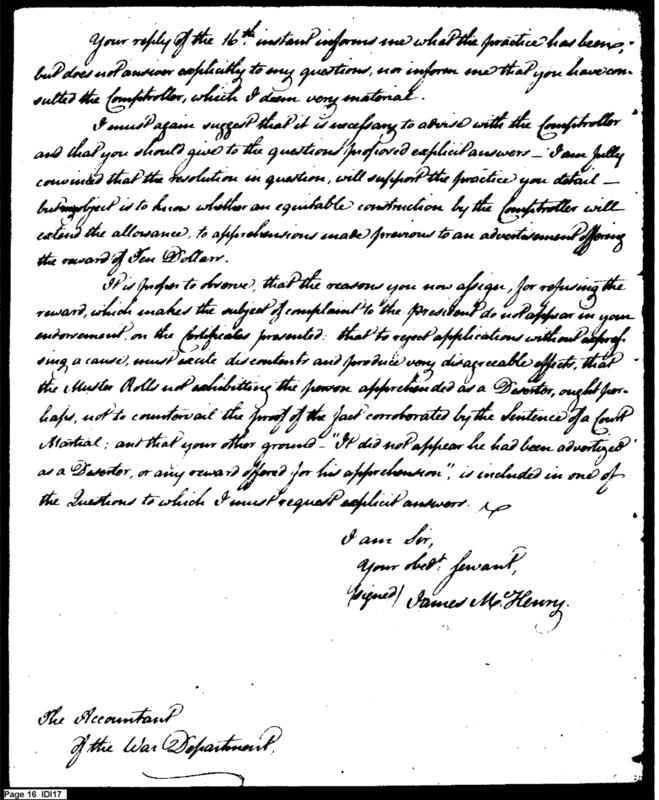 Your reply of the 16th instant informs me what the practice has been,
but does not answer explicitly to my questions, nor inform me that you have con-
sulted the Comptroller, which I deem very material.
I must again suggest that it is necessary to advise with the Comptroller
and that you should give to the questions proposed explicit answers — I am fully
convinced that the resolution in question, will support the practice you detail —
but my object is to know whether an equitable construction by the Comptroller will
extend the allowance, to apprehensions made previous to an advertisement offering
the reward of Ten Dollars.
It is proper to observe, that the reasons you now assign, for refusing the
reward, which makes the subject of complaint to the President do not appear in your
endorsement, on the Certificates presented: that to reject applications without expres-
sing a cause, must excite discontents and produce very disagreeable effects, that
the Muster Rolls not exhibiting the person apprehended as a Deserter, ought per-
haps, not to countervail the proof of the fact corroborated by the Sentence of a Court
Martial; and that your other ground — "It did not appear he had been advertized
as a Deserter, or any reward offered for his apprehension", is included in one of
the Questions to which I must request explicit answers.
I am Sir,
Your obedt. servant,
(signed) James McHenry.
The Accountant
of the War Department.
Page 16 IDI17